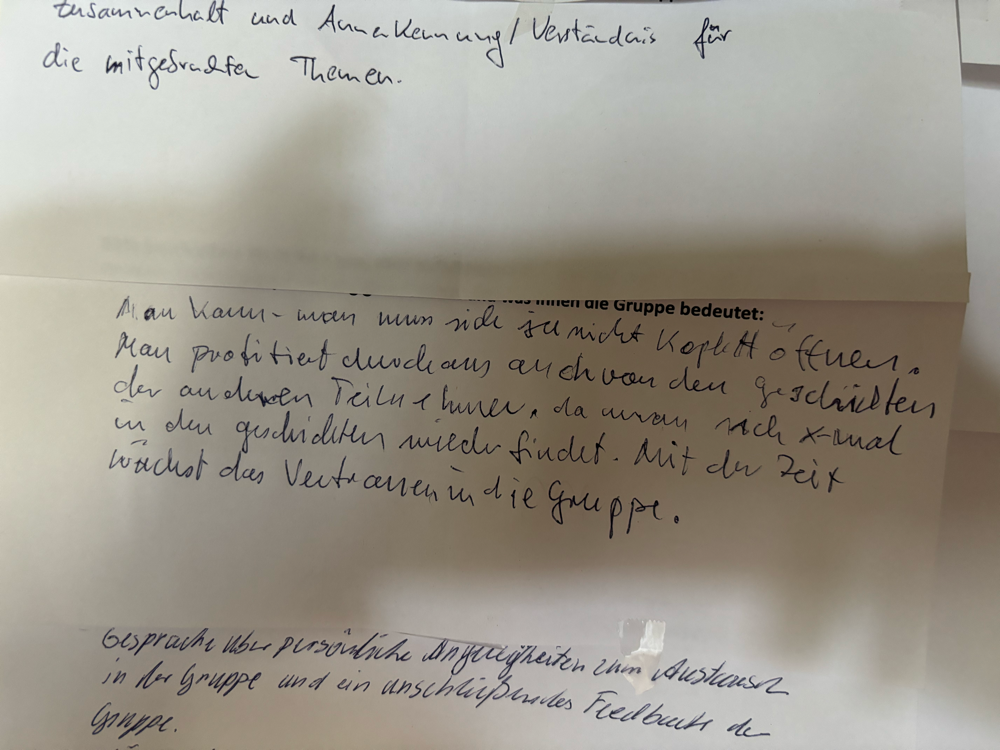 Zusammenhalt und Annerkennung/Verständnis für
die mitgebrachten Themen.
was Ihnen die Gruppe bedeutet:
Man kann - man muss sich ja nicht Koplett öffnen.
Man profitiert durchaus auch von den geschichten
der anderen Teilnehmer, da man sich x-mal
in den geschichten wieder findet. Mit der Zeit
wächst das Vertrauen in die Gruppe.
Gespräche über persönliche zum Austausch
in der Gruppe und ein anschließendes Feedback der
Gruppe.